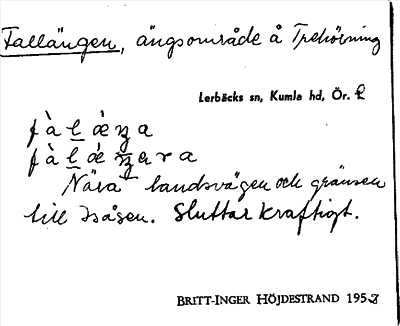 Fallängen, ängsområde å Trehörning
Lerbäcks sn, Kumla hd, Ör. l.
Nära landsvägen och gränsen
till Åsåsen. Sluttar kraftigt.
BRITT-INGER HÖJDESTRAND 1953